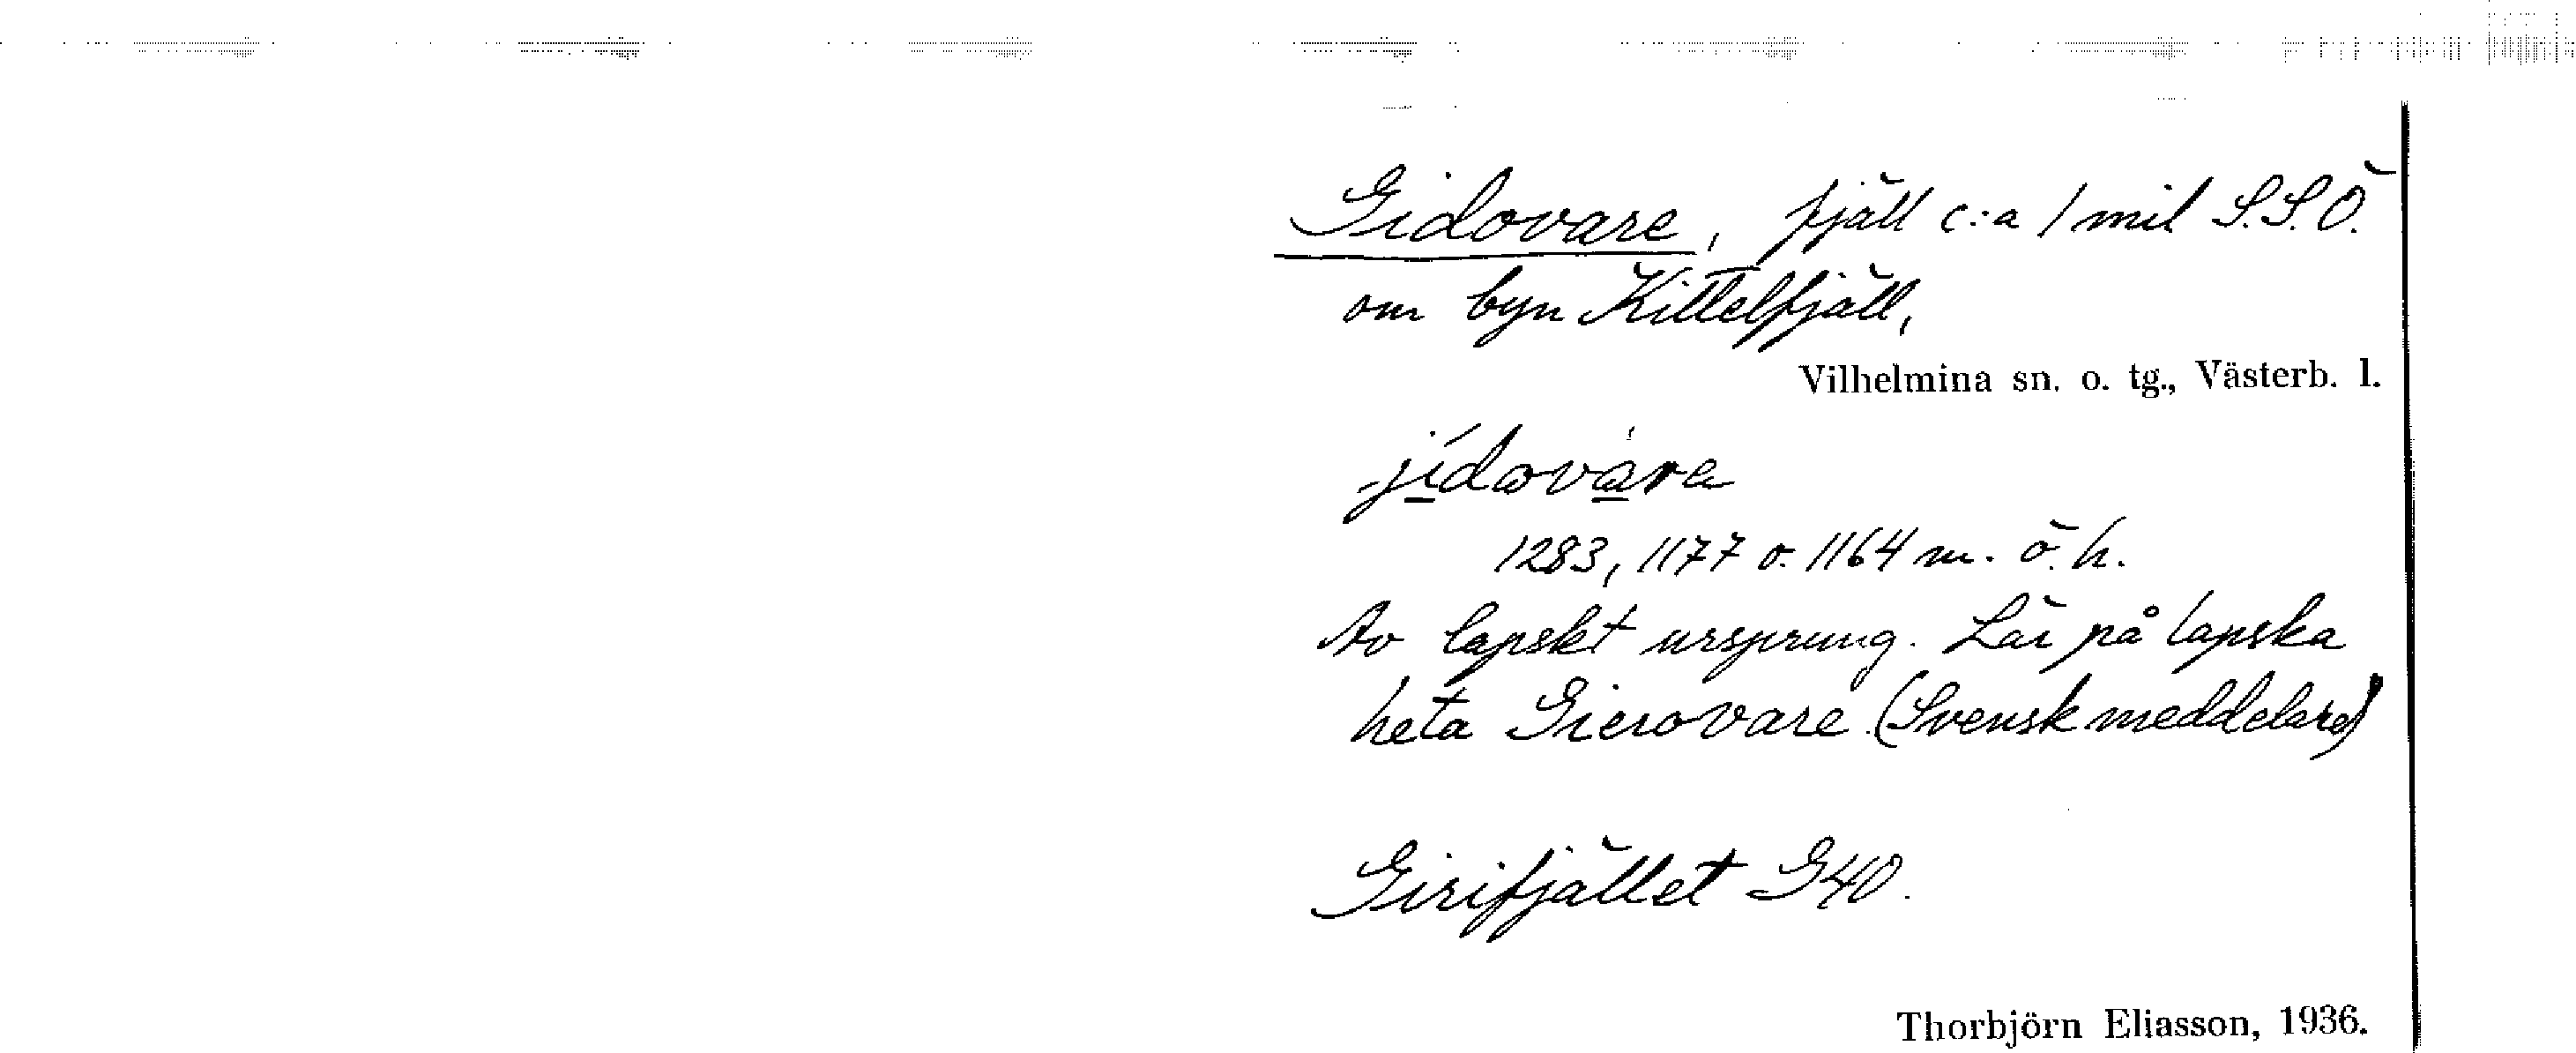 Gidovare, fjäll c:a 1 mil S.S.Ö.
om byn Kittelfjäll,
Vilhelmina sn. o. tg., Västerb. l.
jídovàra
1283, 1177 o. 1164 m. ö. h.
Av lapskt ursprung. Lär på lapska
heta Gierovare. (Svensk meddelare)
Girifjället G40.
Thorbjörn Eliasson, 1936.